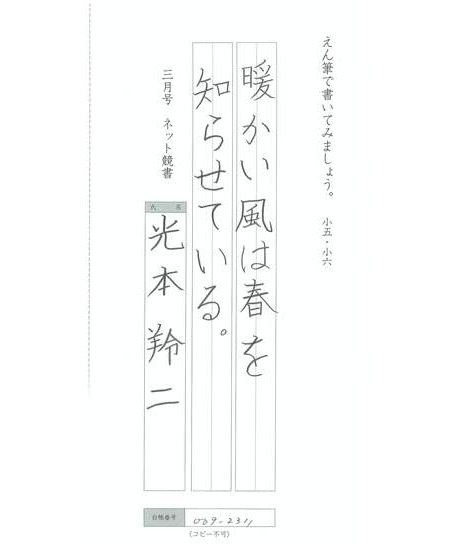 えん筆で書いてみましょう。 小五・小六
暖かい風は春を
知らせている。
三月号 ネット競書
氏名
光本 羚二
台帳番号
009-2311
(コピー不可)